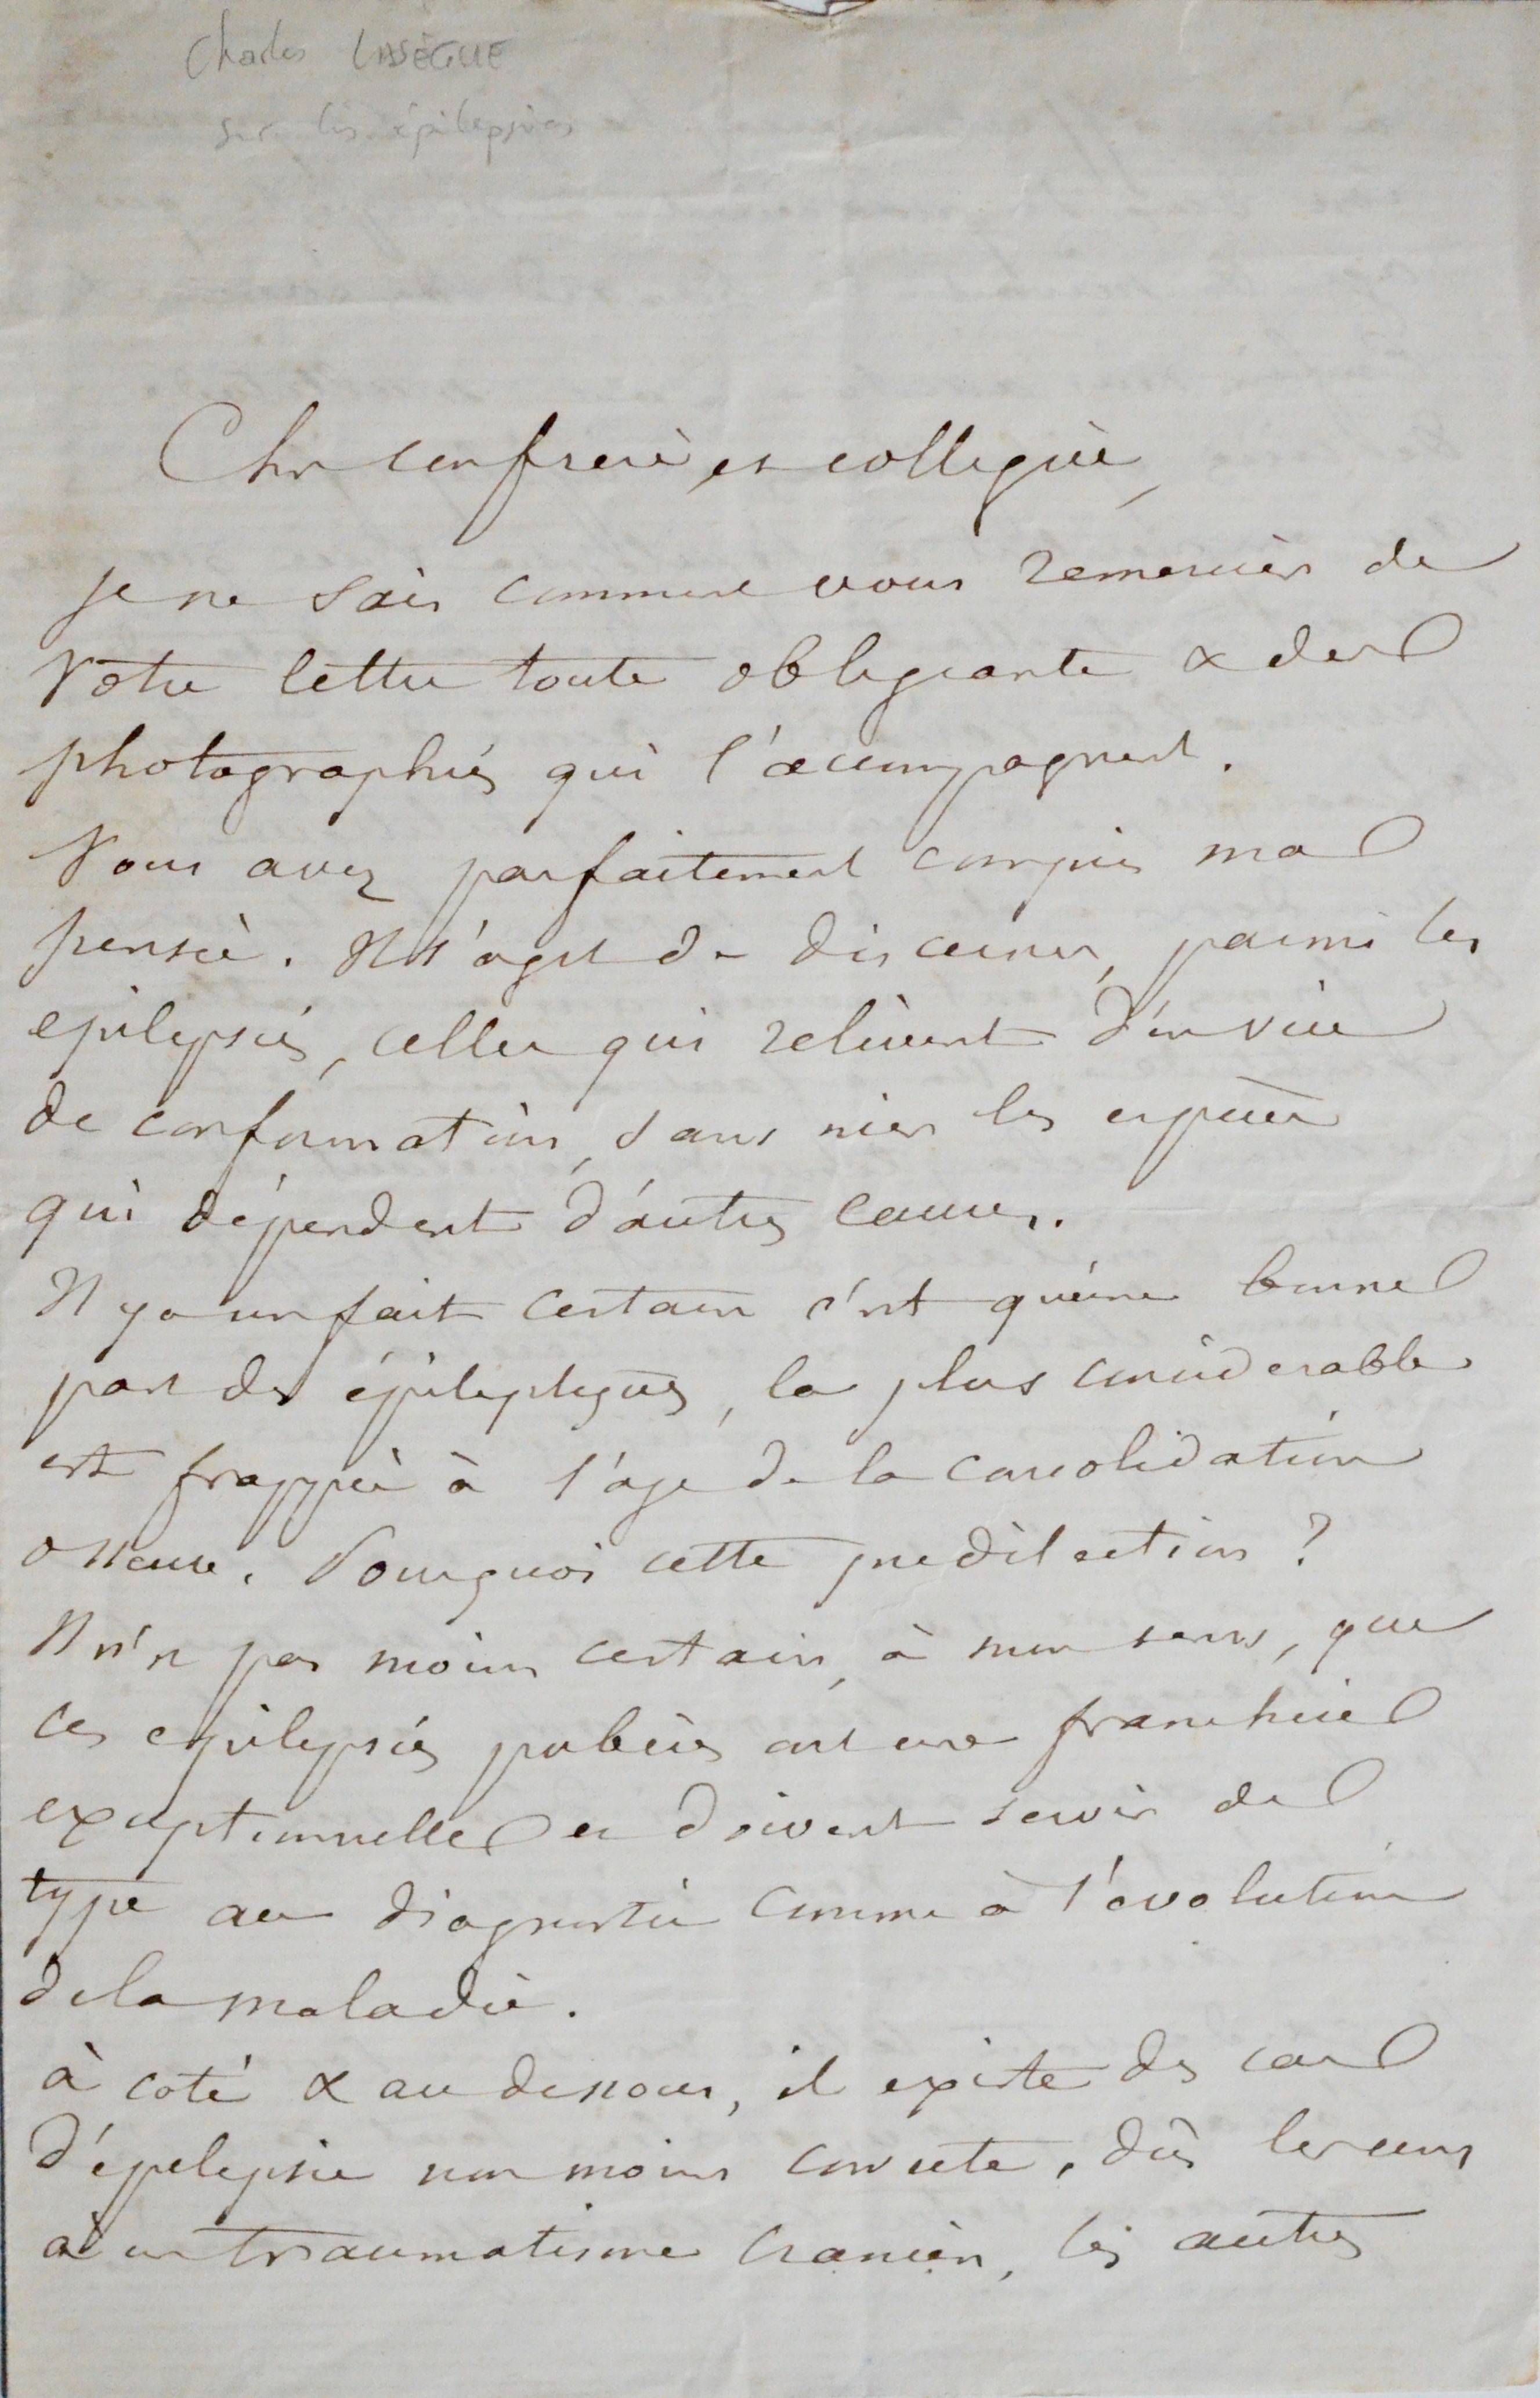 Charles LASÈGUE
sur les épilepsies
Cher confrère et collègue,
Je ne sais comment vous remercier de
votre lettre toute obligeante & des
photographies qui l'accompagnent.
Vous avez parfaitement compris ma
pensée. Il s'agit de discerner, parmi les
epilepsies, celles qui relèvent d'un vice
de conformation, sans nier les espèces
qui dépendent d'autres causes.
Il y a un fait certain c'est qu'une bonne
part des épileptiques, la plus considerable
est frappée à l'age de la consolidation
osseuse. Pourquoi cette predilection ?
Il n'e pas moins certain, à mon sens, que
ces epilepsies pubères ont une franchise
exceptionnelle et doivent servir de
type au diagnostic comme à l'évolution
de la maladie.
à coté & au dessous, il existe des cas
d'épilepsie non moins, dûs les uns
à un traumatisme cranien, les autres